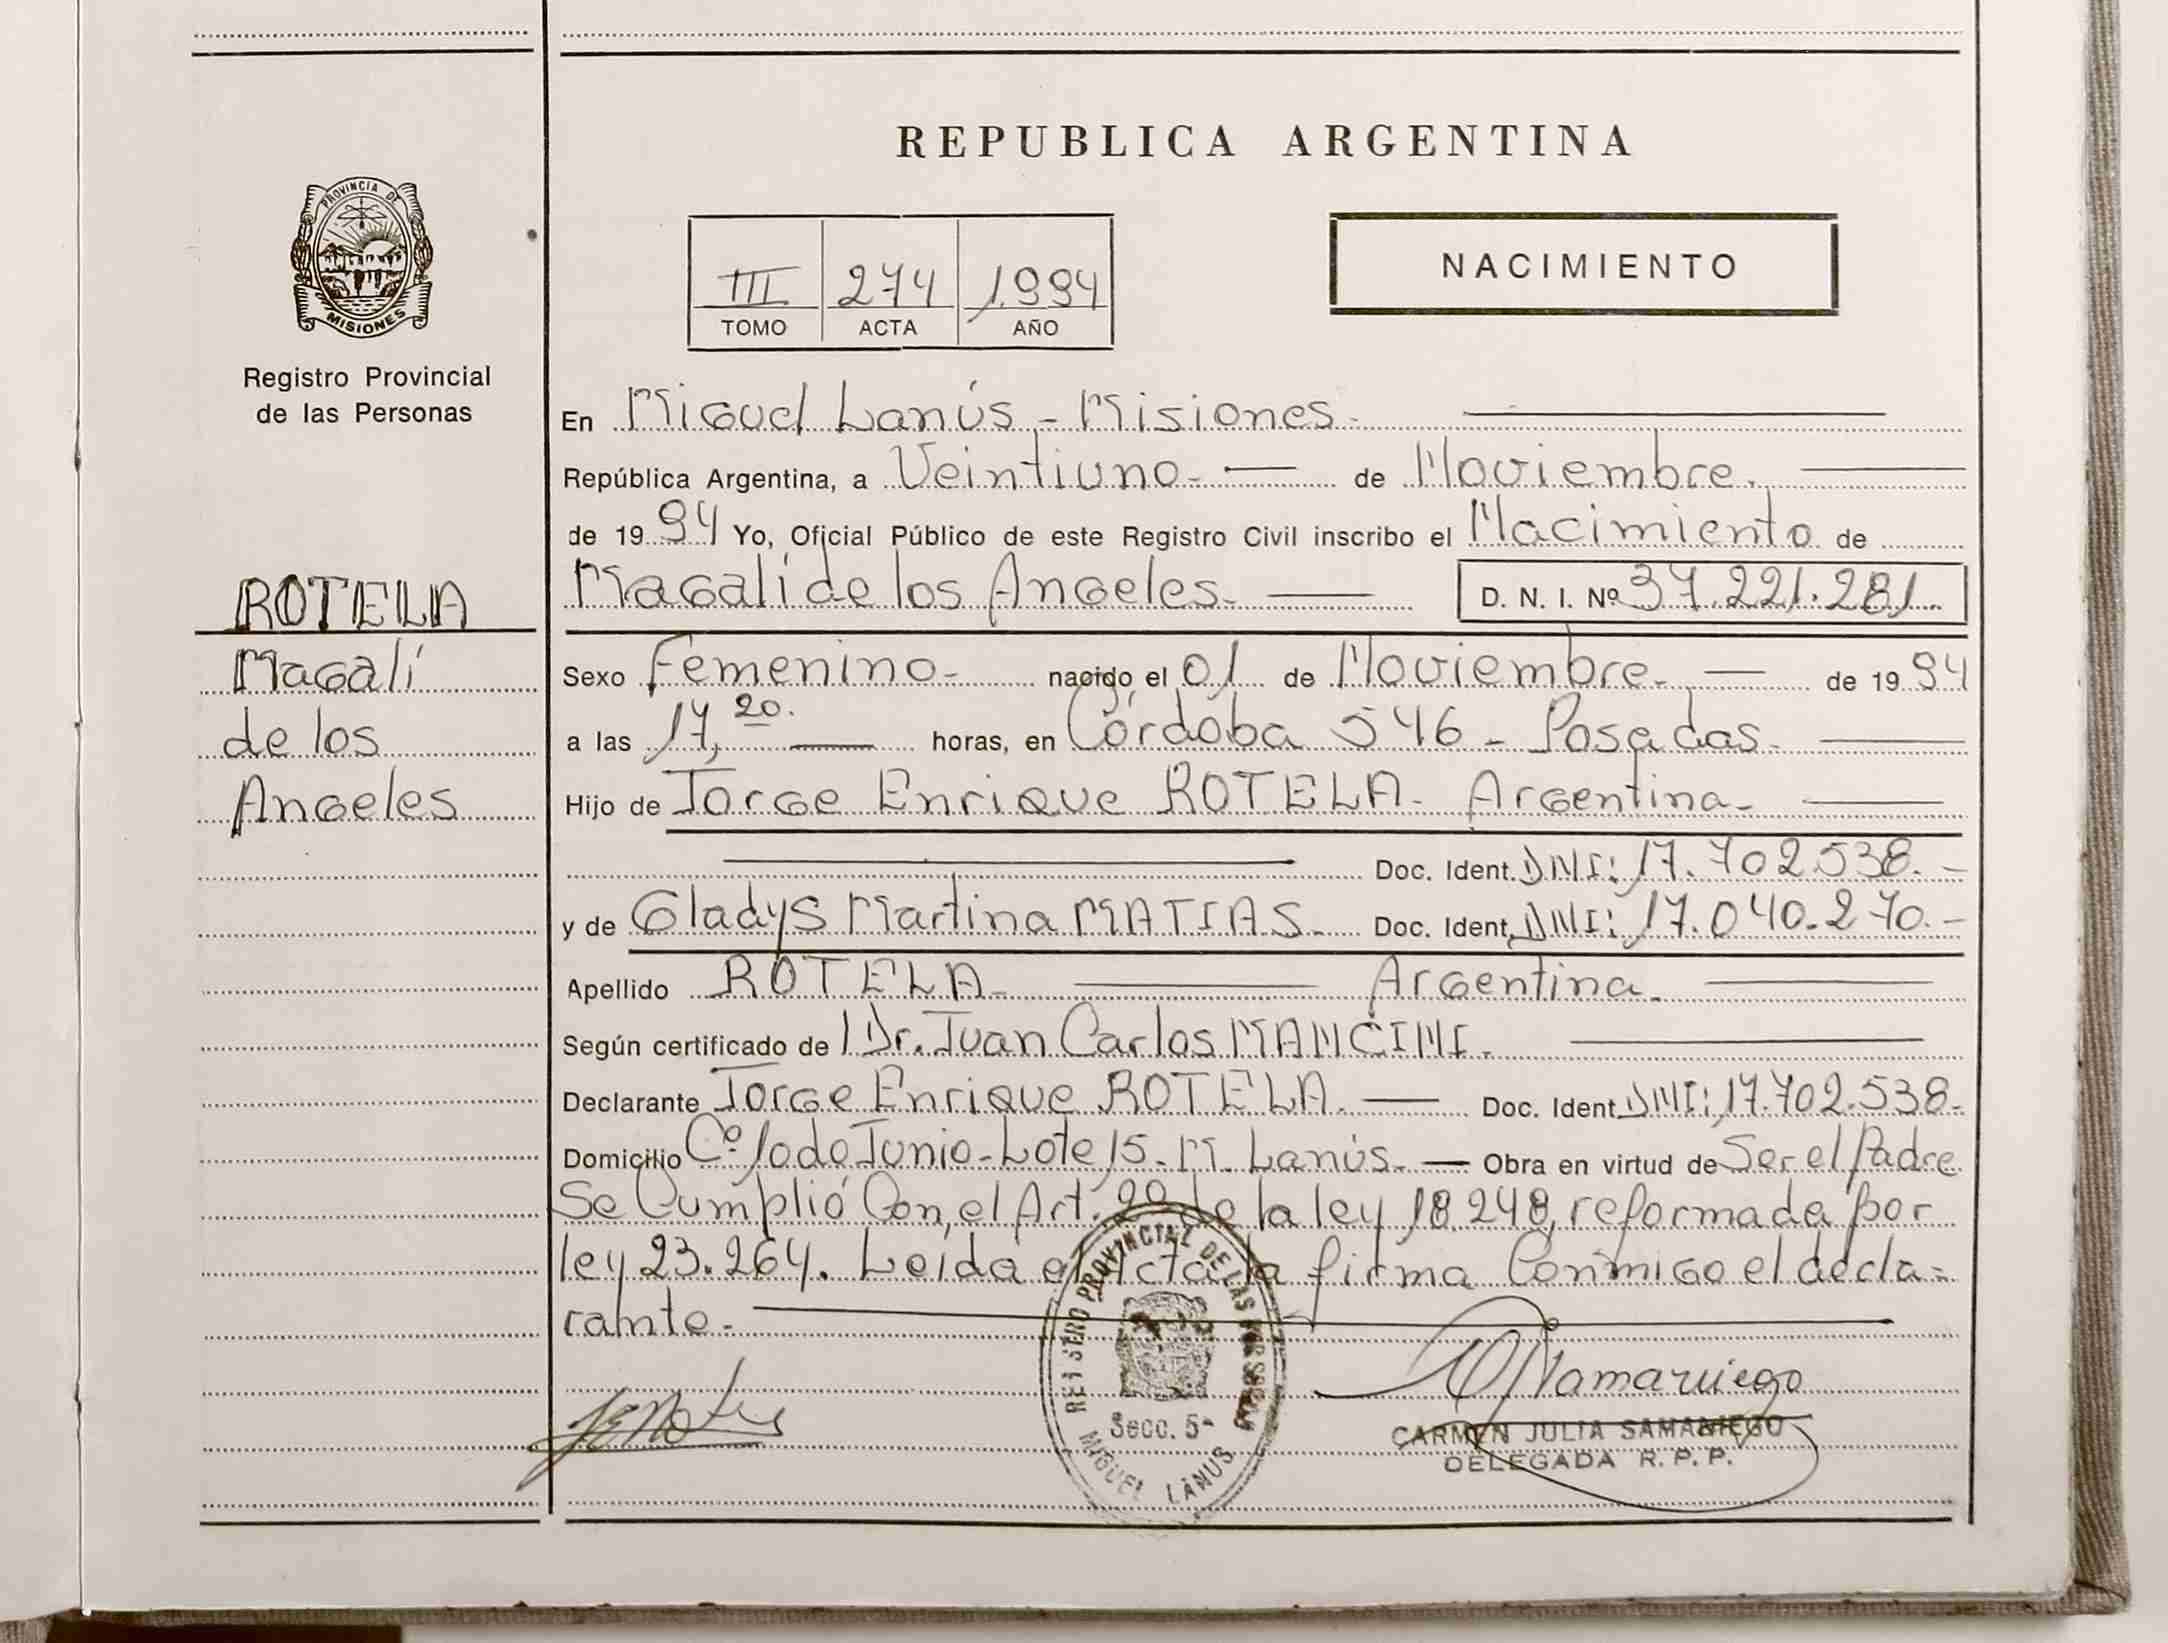 REPUBLICA ARGENTINA
PROVINCIA DE
MISIONES
Registro Provincial
de las Personas
III 274 1.994
TOMO ACTA AÑO
NACIMIENTO
En Miguel Lanús - Misiones.
República Argentina, a Veintiuno. de Noviembre.
de 19 94 Yo, Oficial Público de este Registro Civil inscribo el Nacimiento de
Magalí de los Angeles. D. N. I. Nº 37.221.281.
ROTELA
Magalí
de los
Angeles
Sexo Femenino. nacido el 01 de Noviembre. de 19 94
a las 17,20. horas, en Córdoba 546 - Posadas.
Hijo de Jorge Enrique ROTELA. Argentina.
Doc. Ident. DNI: 17.702.538.-
y de Gladys Martina MATIAS. Doc. Ident. DNI: 17.040.270.-
Apellido ROTELA. Argentina.
Según certificado de Dr. Juan Carlos MANCINI.
Declarante Jorge Enrique ROTELA. Doc. Ident. DNI: 17.702.538.
Domicilio Cº 10 de Junio - Lote 15. M. Lanús. Obra en virtud de Ser el Padre
Se Cumplió Con el Art. 20 de la ley 18.248, reformada por
ley 23.264. Leída el Acta la firma Conmigo el decla=
rante.
REGISTRO PROVINCIAL DE LAS PERSONAS
Secc. 5ª
MIGUEL LANUS
CARMEN JULIA SAMANIEGO
DELEGADA R. P. P.